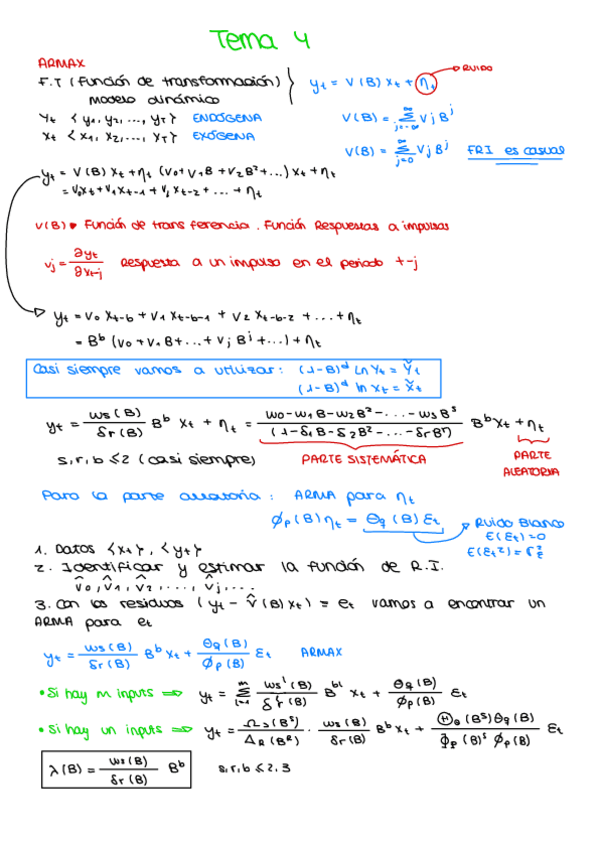 Tema 4
ARMAX
F.T (Función de transformación)
modelo dinámico
y_t = V(B) x_t + η_t → RUIDO
Y_t {y_1, y_2, ..., y_T} ENDÓGENA
X_t {x_1, x_2, ..., x_T} EXÓGENA
V(B) = Σ_{j=-∞}^{∞} V_j B^j
V(B) = Σ_{j=0}^{∞} V_j B^j FRI es casual
y_t = V(B) x_t + η_t (v_0 + v_1 B + v_2 B² + ...) x_t + η_t
= v_0 x_t + v_1 x_{t-1} + v_j x_{t-2} + ... + η_t
V(B) → Función de transferencia. Función Respuestas a impulsos
v_j = ∂y_t / ∂x_{t-j} Respuesta a un impulso en el periodo t-j
y_t = v_0 x_{t-b} + v_1 x_{t-b-1} + v_2 x_{t-b-2} + ... + η_t
= B^b (v_0 + v_1 B + ... + v_j B^j + ...) + η_t
Casi siempre vamos a utilizar: (1-B)^d ln Y_t = Y̌_t
(1-B)^d ln X_t = X̌_t
y_t = ws(B) / δr(B) B^b x_t + η_t = (w_0 - w_1 B - w_2 B² - ... - w_s B^s) / (1 - δ_1 B - δ_2 B² - ... - δ_r B^r) B^b x_t + η_t
s, r, b ≤ 2 (casi siempre)
PARTE SISTEMÁTICA
PARTE ALEATORIA
Para la parte aleatoria: ARMA para η_t
ϕ_p(B) η_t = θ_q(B) ε_t → Ruido Blanco
E(ε_t) = 0
E(ε_t²) = σ²_ε
1. Datos {x_t}, {y_t}
2. Identificar y estimar la función de R.I.
v̂_0, v̂_1, v̂_2, ..., v̂_j, ...
3. Con los residuos (y_t - V̂(B) x_t) = e_t vamos a encontrar un
ARMA para e_t
y_t = ws(B) / δr(B) B^b x_t + θ_q(B) / ϕ_p(B) ε_t ARMAX
• Si hay m inputs ⇒ y_t = Σ_{i=1}^{m} ws^i(B) / δ_r^i(B) B^{bi} x_t + θ_q(B) / ϕ_p(B) ε_t
• Si hay un inputs ⇒ y_t = Ω_s(B^s) / Δ_R(B^R) · ws(B) / δr(B) B^b x_t + Θ_Q(B^s) θ_q(B) / Φ_p(B)^s ϕ_p(B) ε_t
λ(B) = ws(B) / δr(B) B^b
s, r, b ≤ 2, 3